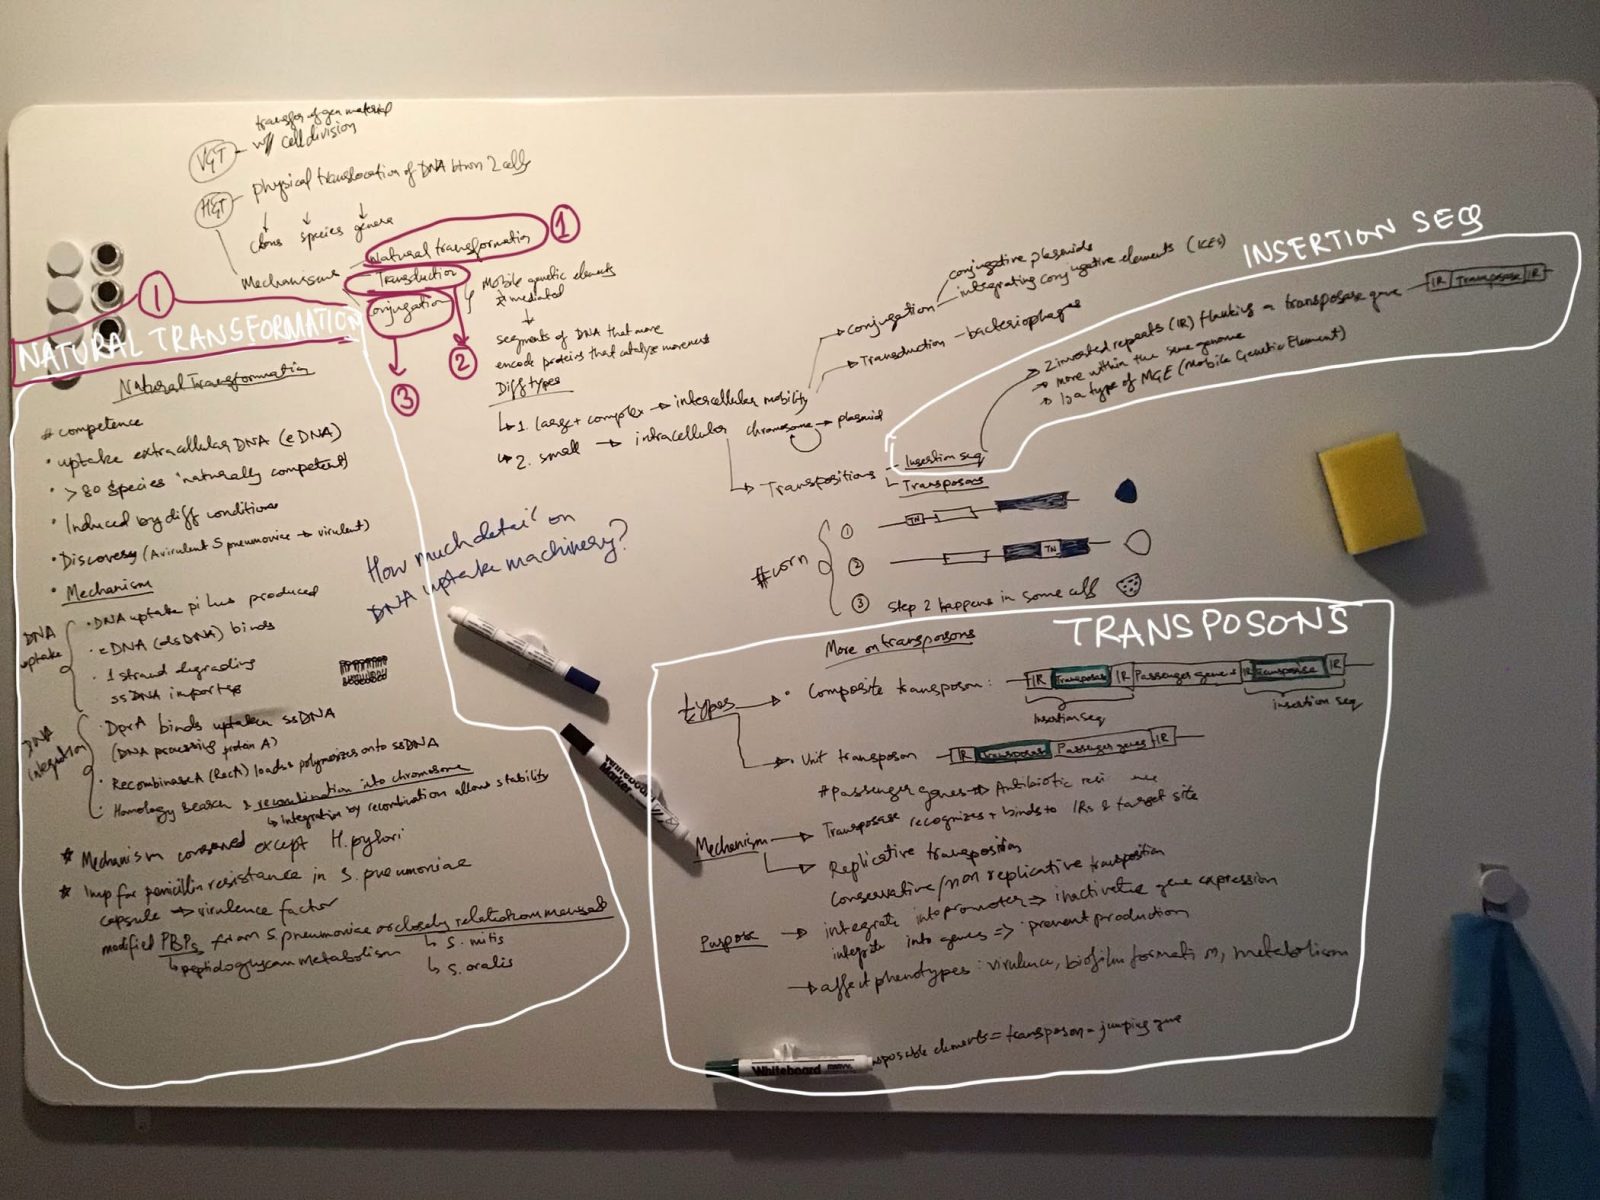 transfer of gen material
VGT - w/ cell division
HGT - physical translocation of DNA btwn 2 cells
clons species genera
Mechanisms
Natural transformation
Transduction
Conjugation
1
2
3
Mobile genetic elements
mediated
segments of DNA that move
encode proteins that catalyze movement
Diff types
1. large + complex → intercellular mobility
2. small → intracellular chromosome → plasmid
→ conjugation
conjugative plasmids
integrating conjugative elements (ICEs)
→ Transduction - bacteriophages
→ Transpositions
Insertion seq
Transposons
INSERTION SEQ
→ 2 inverted repeats (IR) flanking a transposase gene
IR Transposase IR
→ move within the same genome
→ Is a type of MGE (Mobile Genetic Element)
# corn
① TN
② TN
③ Step 2 happens in some cells
1
NATURAL TRANSFORMATION
Natural Transformation
# competence
• uptake extracellular DNA (eDNA)
• > 80 species 'naturally competent)
• Induced by diff conditions
• Discovery (Avirulent S pneumoniae → virulent)
• Mechanism
DNA uptake
• DNA uptake pilus produced
• eDNA (dsDNA) binds
• 1 strand degrading
ssDNA imported
DNA integration
• DprA binds uptaken ssDNA
(DNA processing protein A)
• Recombinase A (RecA) loads & polymerizes onto ssDNA
• Homology search & recombination into chromosome
↳ Integration by recombination allows stability
* Mechanism conserved except H. pylori
* Imp for penicillin resistance in S. pneumoniae
capsule → virulence factor
modified PBPs from S. pneumoniae or closely related commensal
↳ peptidoglycan metabolism
↳ S. mitis
↳ S. oralis
How much detail on
DNA uptake machinery?
TRANSPOSONS
More on transposons
types → • Composite transposon:
IR Transposase IR Passenger genes IR Transposase IR
insertion seq
insertion seq
→ • Unit transposon
IR Transposase Passenger genes IR
# passenger genes → Antibiotic
Mechanism → Transposase recognizes + binds to IRs & target site
→ Replicative transposition
Conservative/non replicative transposition
Purpose → integrate into promoter ⇒ inactivate gene expression
integrate into genes ⇒ prevent production
→ affect phenotypes: virulence, biofilm formation, metabolism
elements = transposon = jumping gene
Whiteboard
Marker
Whiteboard